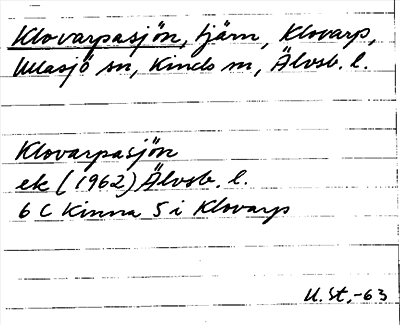 Klovarpasjön, tjärn, Klovarp,
Ullasjö sn, Kinds m, Älvsb. l.
Klovarpasjön
ek (1962) Älvsb. l.
6 C Kinna 5 i Klovarp
U. St. -63